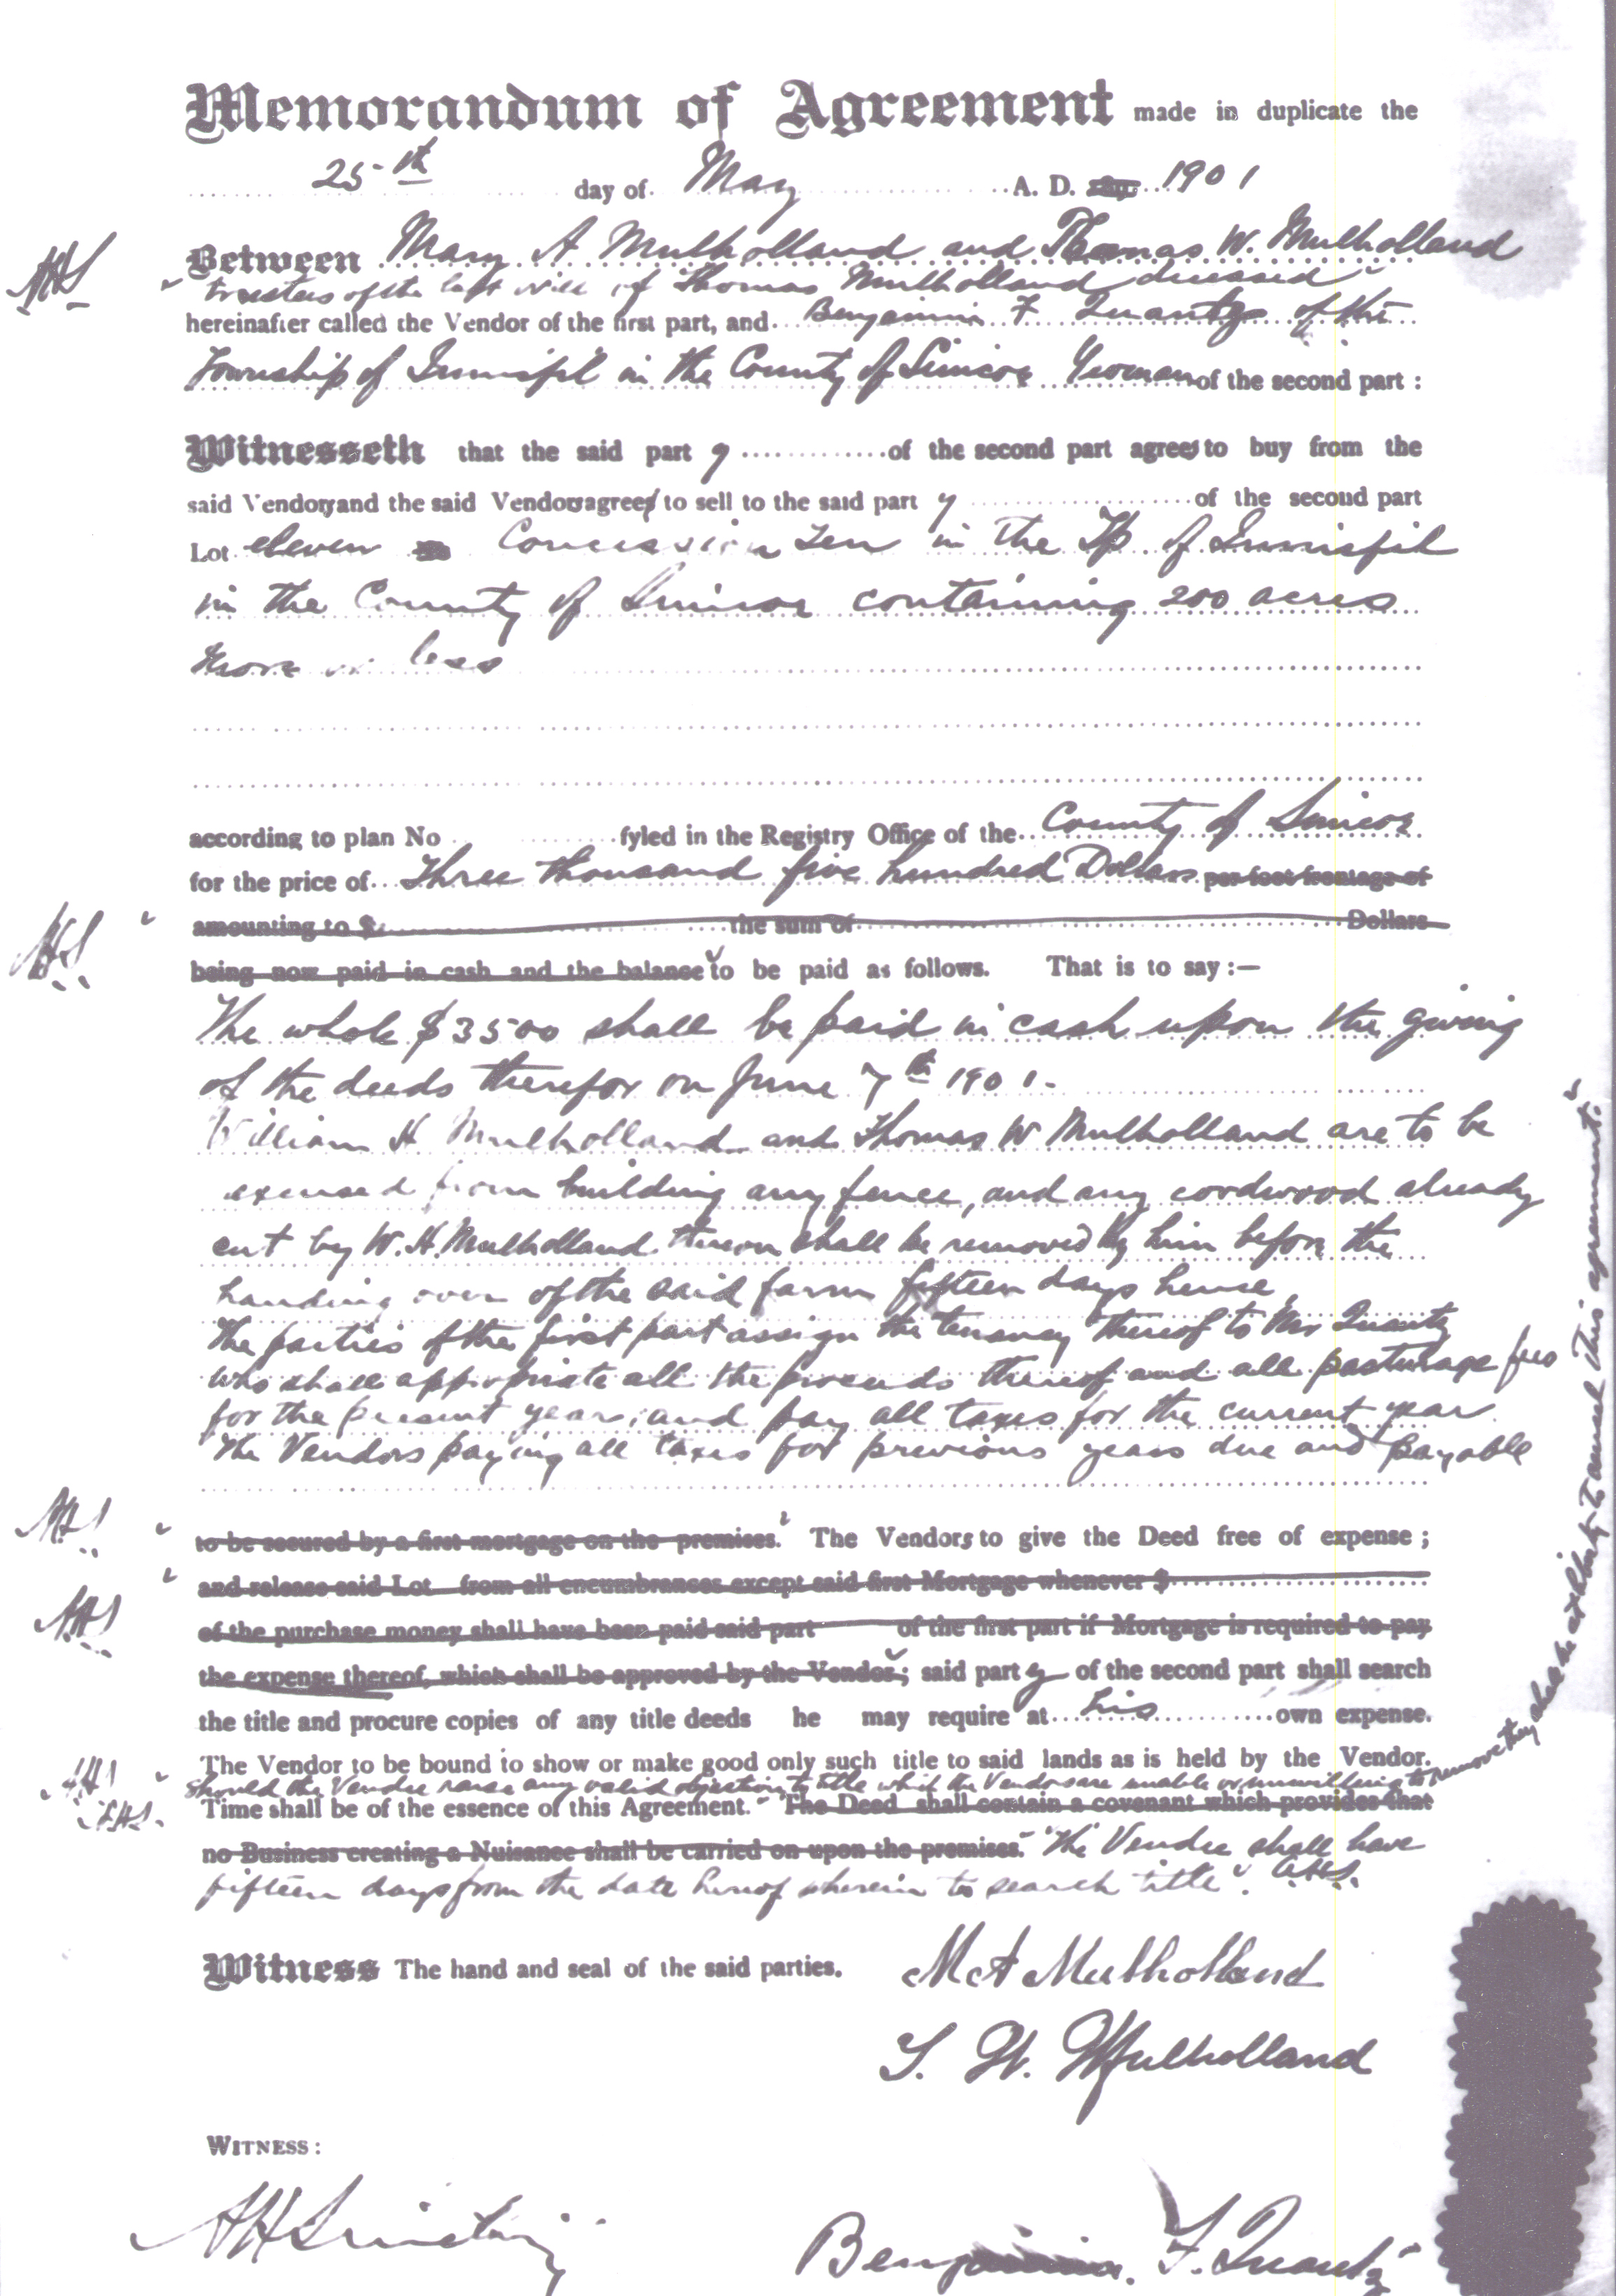 Memorandum of Agreement made in duplicate the
25th day of May A. D. 1901
Between Mary A Mulholland and Thomas W. Mulholland
trustees of the last will of Thomas Mulholland deceased
hereinafter called the Vendor of the first part, and Benjamin F Quantz of the
Township of Innisfil in the County of Simcoe Yeoman of the second part :
Witnesseth that the said party of the second part agrees to buy from the
said Vendors and the said Vendors agree to sell to the said party of the second part
Lot eleven Concession Ten in the Tp of Innisfil
in the County of Simcoe containing 200 acres
more or less
according to plan No fyled in the Registry Office of the County of Simcoe
for the price of Three thousand five hundred Dollars per foot frontage of
amounting to $ the sum of Dollars
being now paid in cash and the balance to be paid as follows. That is to say :—
The whole $3500 shall be paid in cash upon the giving
of the deeds therefor on June 7th 1901.
William H Mulholland and Thomas W Mulholland are to be
excused from building any fence, and any cordwood already
cut by W. H. Mulholland thereon shall be removed by him before the
handing over of the said farm fifteen days hence,
The parties of the first part assign the tenancy thereof to Mr Quantz
who shall appropriate all the proceeds thereof and all pasturage fees
for the present year, and pay all taxes for the current year
The Vendors paying all taxes for previous years due and payable
to be secured by a first mortgage on the premises. The Vendors to give the Deed free of expense ;
and release said Lot from all encumbrances except said first Mortgage whenever $
of the purchase money shall have been paid said part of the first part if Mortgage is required to pay
the expense thereof, which shall be approved by the Vendor ; said party of the second part shall search
the title and procure copies of any title deeds he may require at his own expense.
The Vendor to be bound to show or make good only such title to said lands as is held by the Vendor.
should the Vendee raise any valid objection to title which the Vendors are unable or unwilling to remove they shall be at liberty to cancel this agreement.
Time shall be of the essence of this Agreement. The Deed shall contain a covenant which provides that
no Business creating a Nuisance shall be carried on upon the premises. "The Vendee shall have
fifteen days from the date hereof wherein to search title".
Witness The hand and seal of the said parties.
M A Mulholland
T. W. Mulholland
WITNESS :
Benjamin. F. Quantz